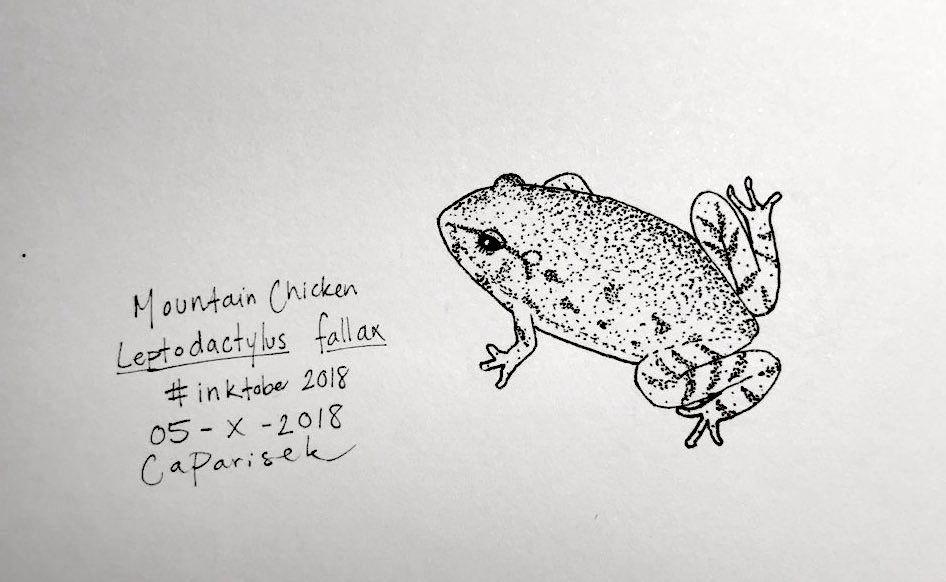 Mountain Chicken
Leptodactylus fallax
#inktober 2018
05-X-2018
CaParisek